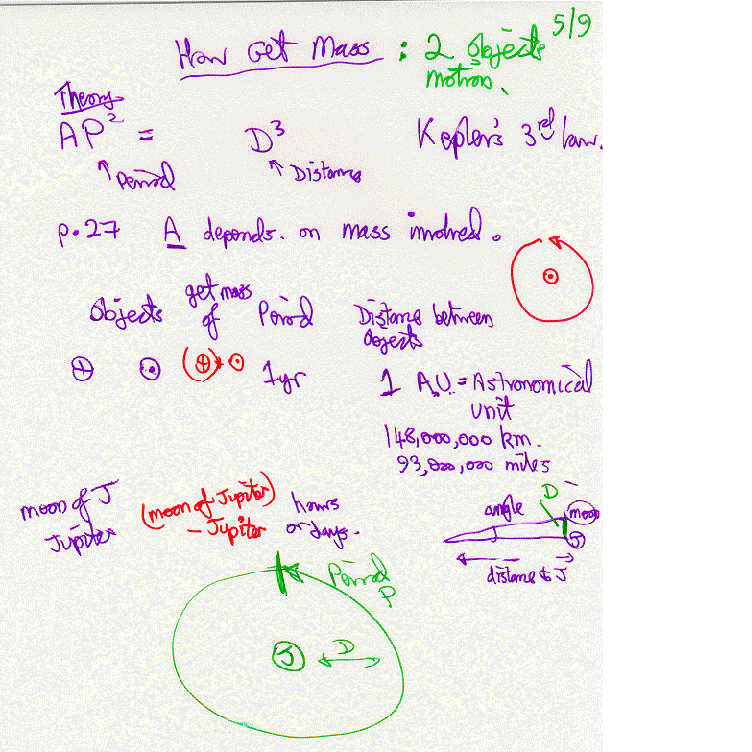 5/9
How Get Mass : 2 Objects
motion.
Theory
AP² = D³ Kepler's 3rd law.
↑ Period ↑ Distance
p.27 A depends on mass involved.
Objects get mass of Period Distance between Objects
⊕ ⊙ (⊕+⊙) 1yr 1 A.U. = Astronomical
Unit
148,000,000 km.
93,000,000 miles
moon of J (moon of Jupiter) hours angle D moon
Jupiter – Jupiter or days. J
distance to J
Period
P
J D